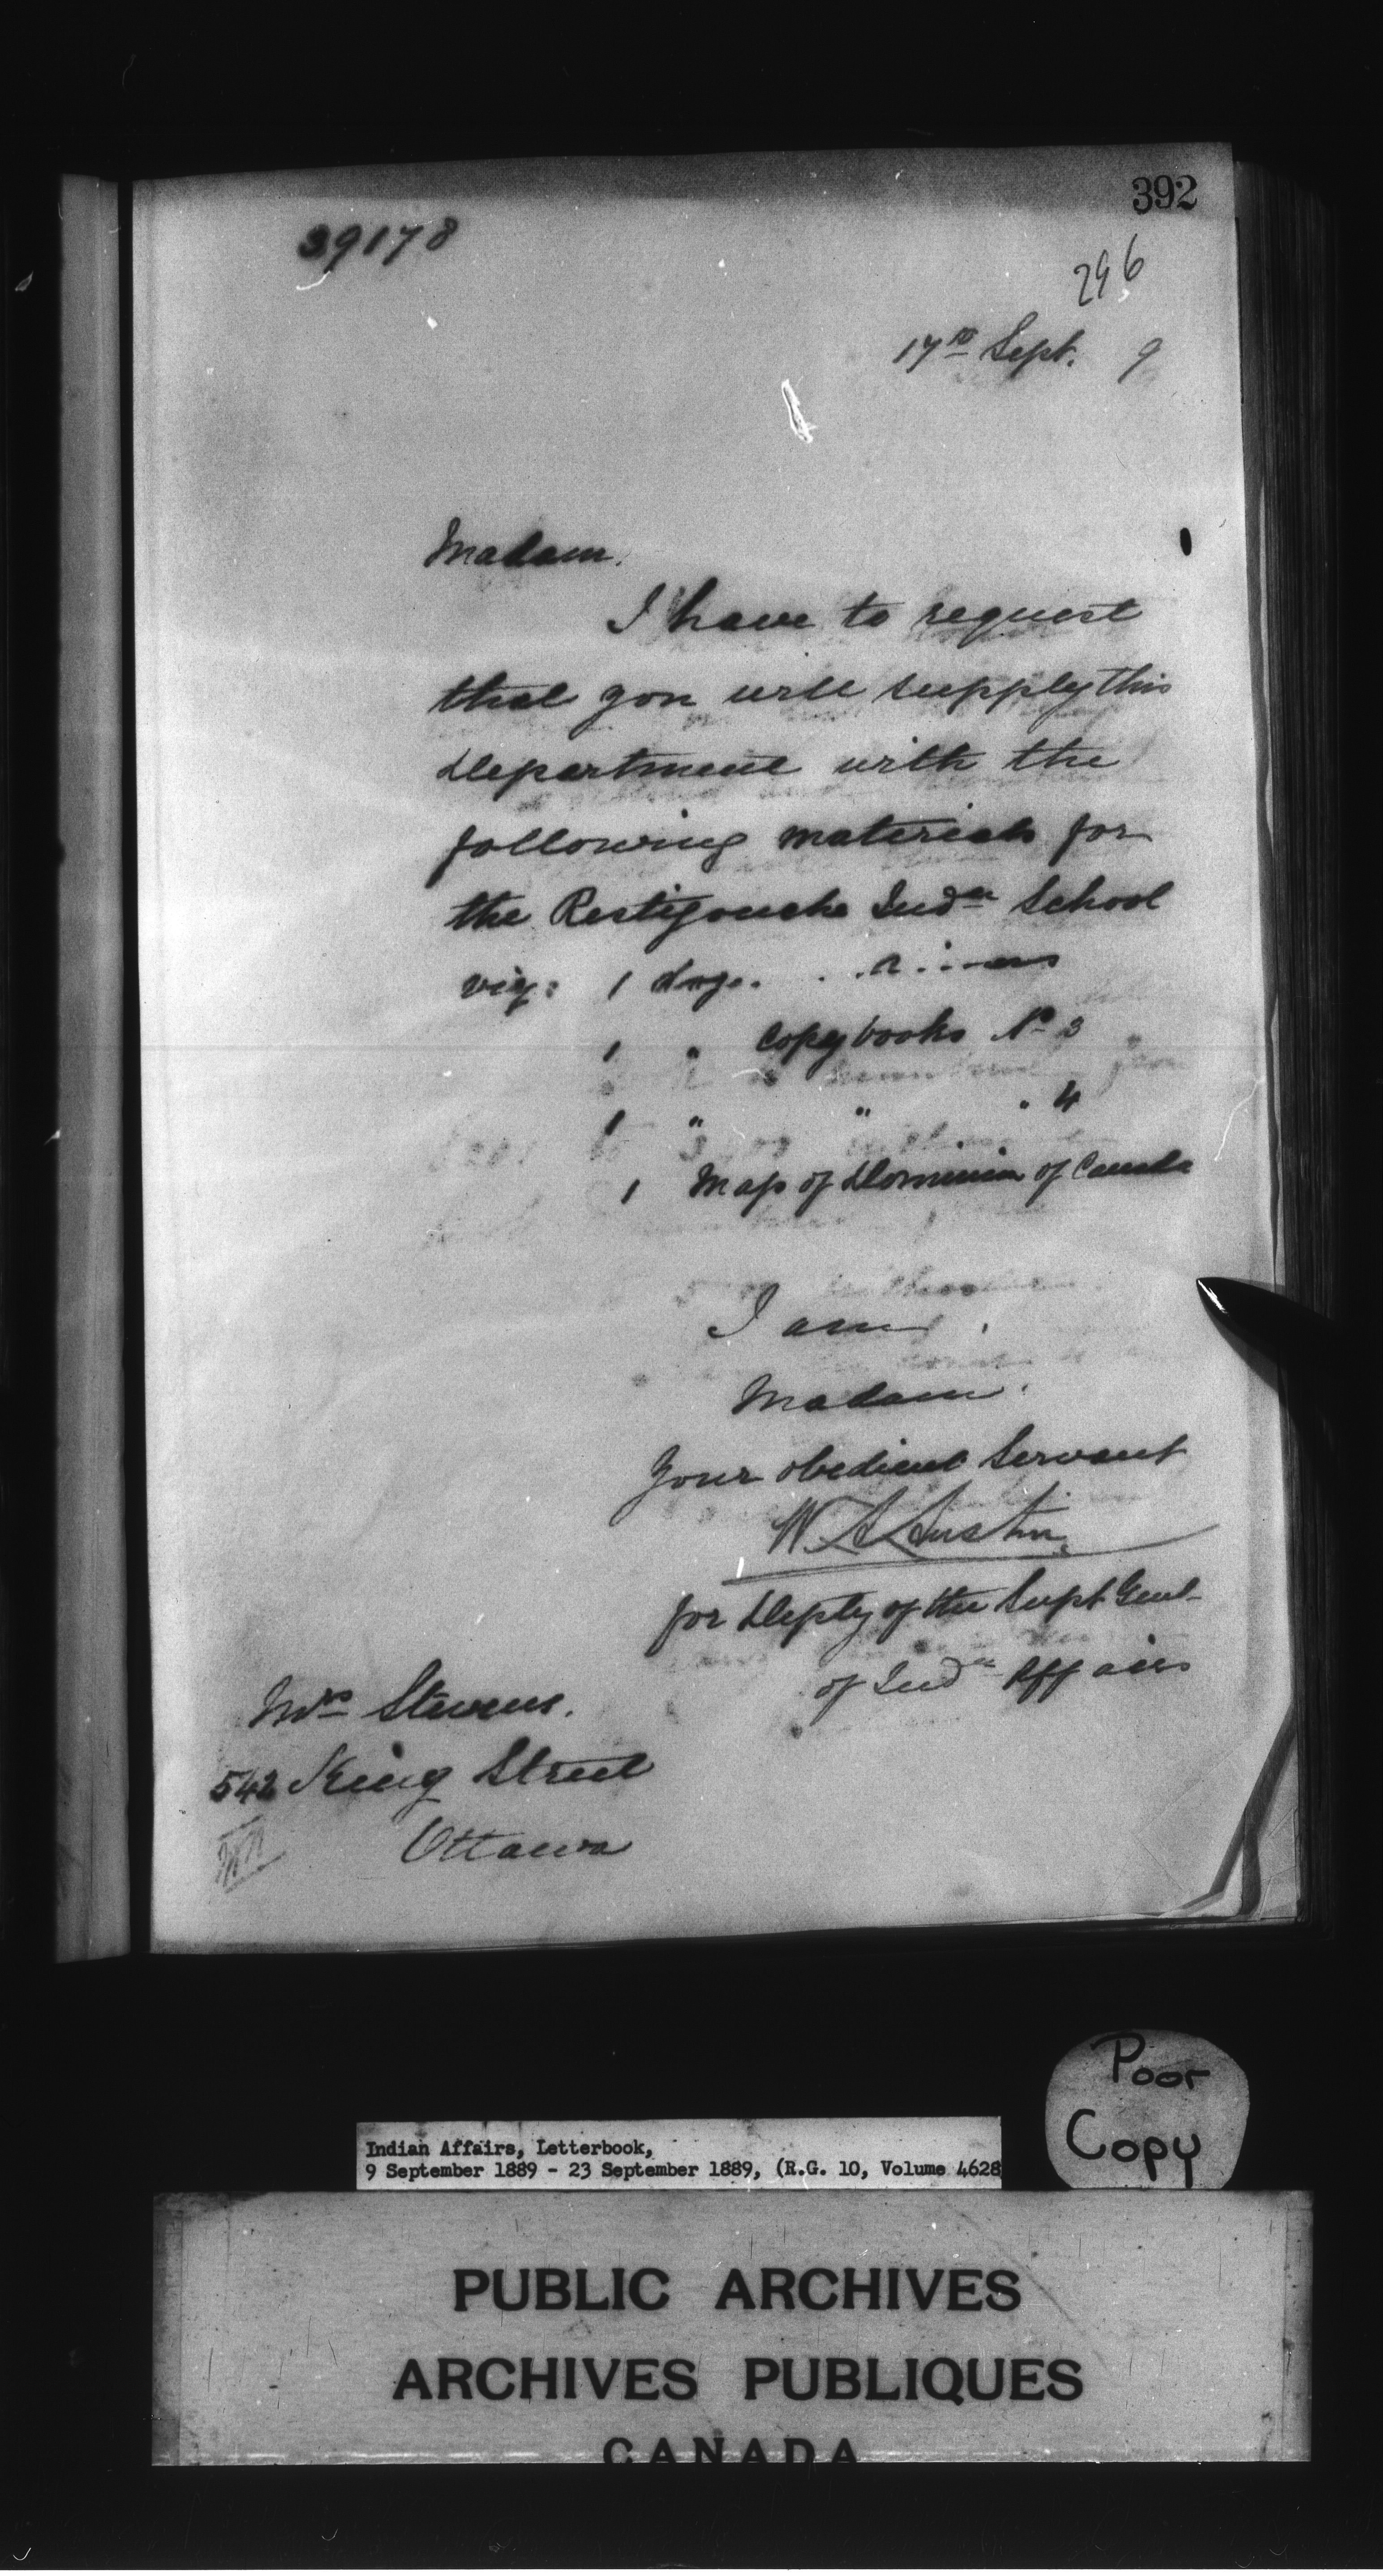 392
39178
296
17th Sept. 9
Madam.
I have to request
that you will supply this
Department with the
following materials for
the Restigouche Indn School
viz: 1 doz.
1 " Copybooks No 3
1 " " " 4
1 Map of Dominion of Canada
I am,
Madam.
Your obedient Servant
W. A. Austin.
for Depty of the Supt. Genl
of Indn Affairs
Mrs Stevens.
542 King Street
Ottawa
Poor
Copy
Indian Affairs, Letterbook,
9 September 1889 - 23 September 1889, (R.G. 10, Volume 4628
PUBLIC ARCHIVES
ARCHIVES PUBLIQUES
CANADA